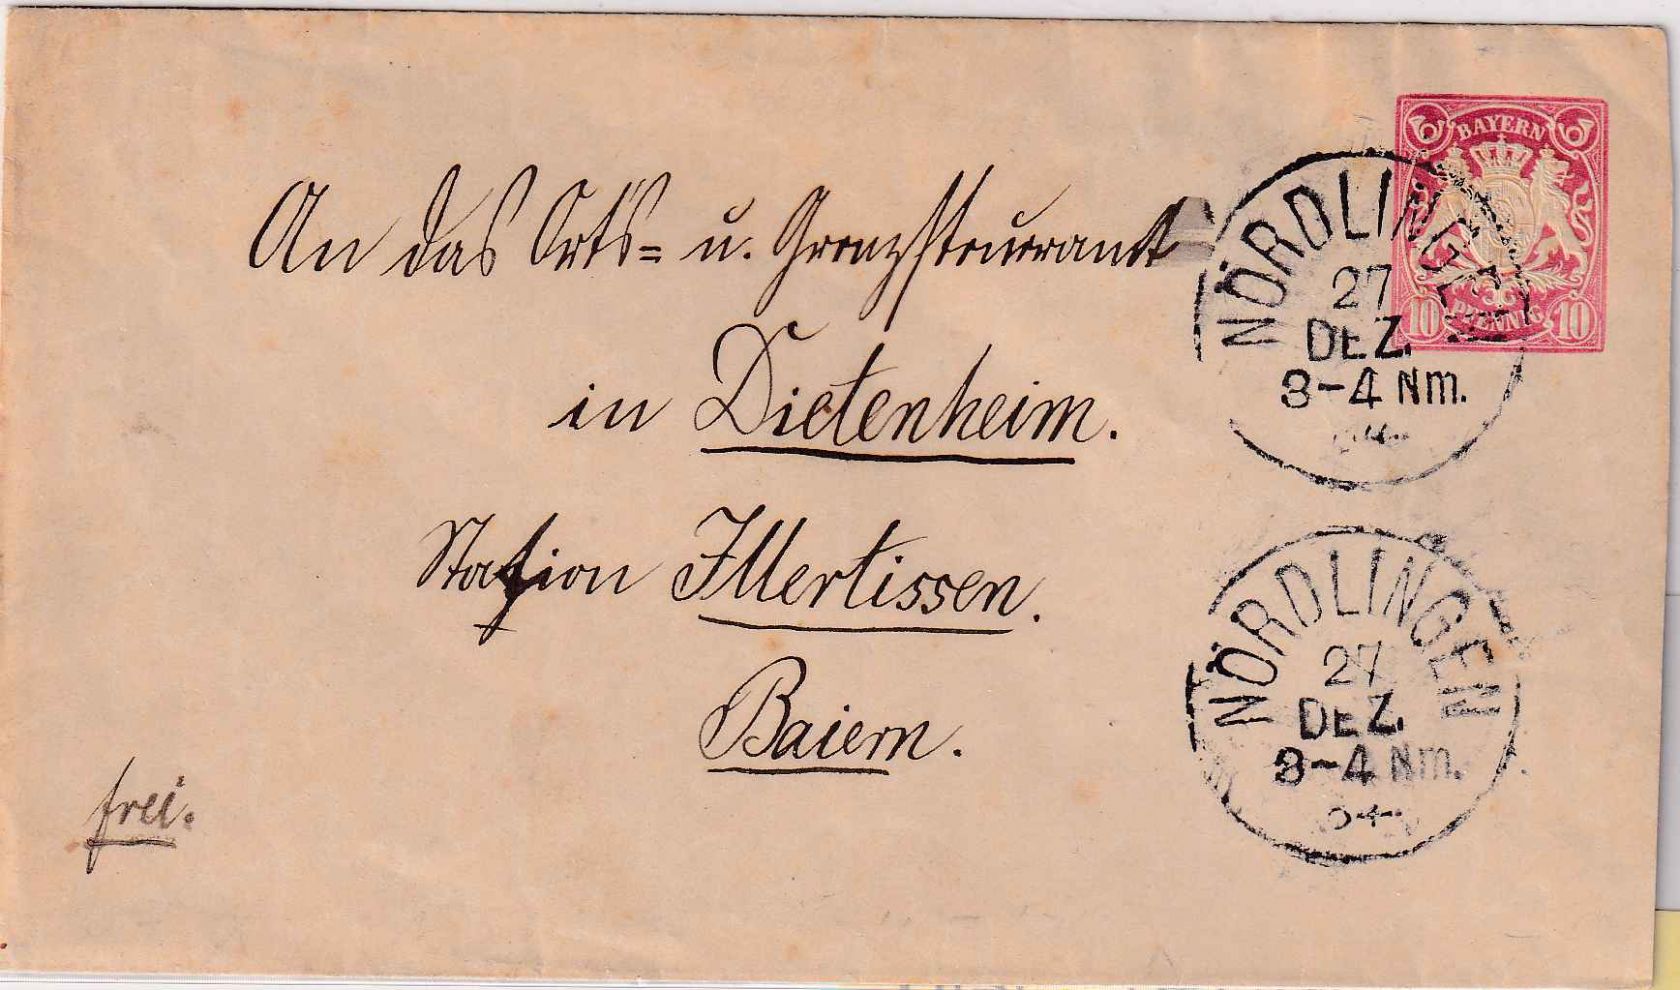 BAYERN
10 PFENNIG 10
NÖRDLINGEN
27
DEZ.
3-4 Nm.
An das Orts= u. Grenzsteueramt
in Dietenheim.
Station Illertissen.
Baiern.
frei.
NÖRDLINGEN
27
DEZ.
3-4 Nm.